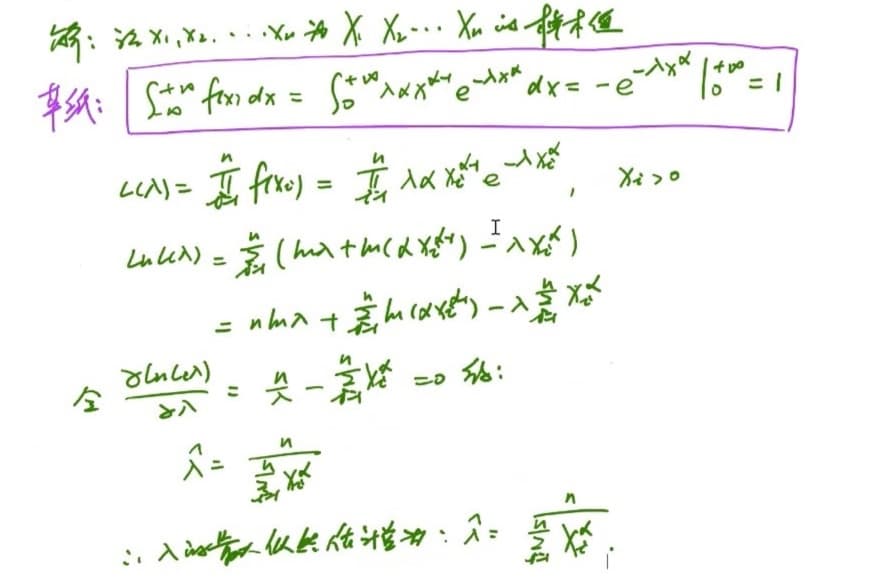 解：设 x₁,x₂,····xₙ 为 X₁ X₂··· Xₙ 的样本值
草纸： ∫_{-∞}^{+∞} f(x) dx = ∫_0^{+∞} λαx^{α-1} e^{-λx^α} dx = -e^{-λx^α} |_0^{+∞} = 1
L(λ) = ∏_{i=1}^{n} f(x_i) = ∏_{i=1}^{n} λα x_i^{α-1} e^{-λx_i^α} , x_i > 0
Ln L(λ) = ∑_{i=1}^{n} ( lnλ + ln(α x_i^{α-1}) - λx_i^α )
= n lnλ + ∑_{i=1}^{n} ln(αx_i^{α-1}) - λ ∑_{i=1}^{n} x_i^α
令 ∂lnL(λ)/∂λ = n/λ - ∑_{i=1}^{n} x_i^α = 0 得：
λ̂ = n / ∑_{i=1}^{n} x_i^α
∴ λ的最大似然估计量为：λ̂ = n / ∑_{i=1}^{n} X_i^α .